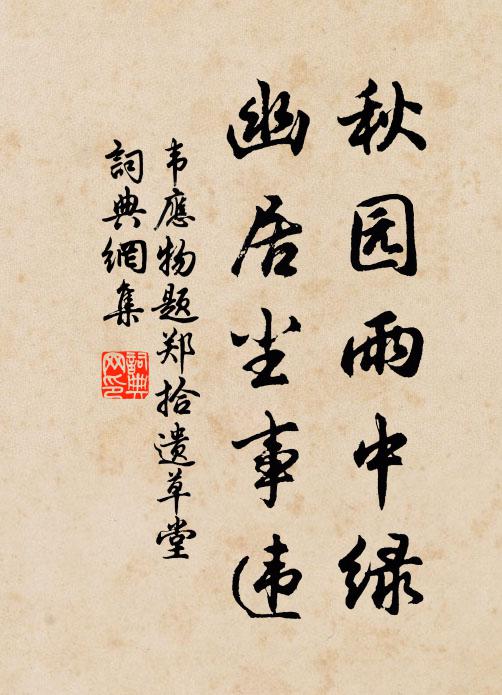 秋园雨中绿
幽居尘事违
韦應物题郑拾遗草堂
詞典網集
詞典网印